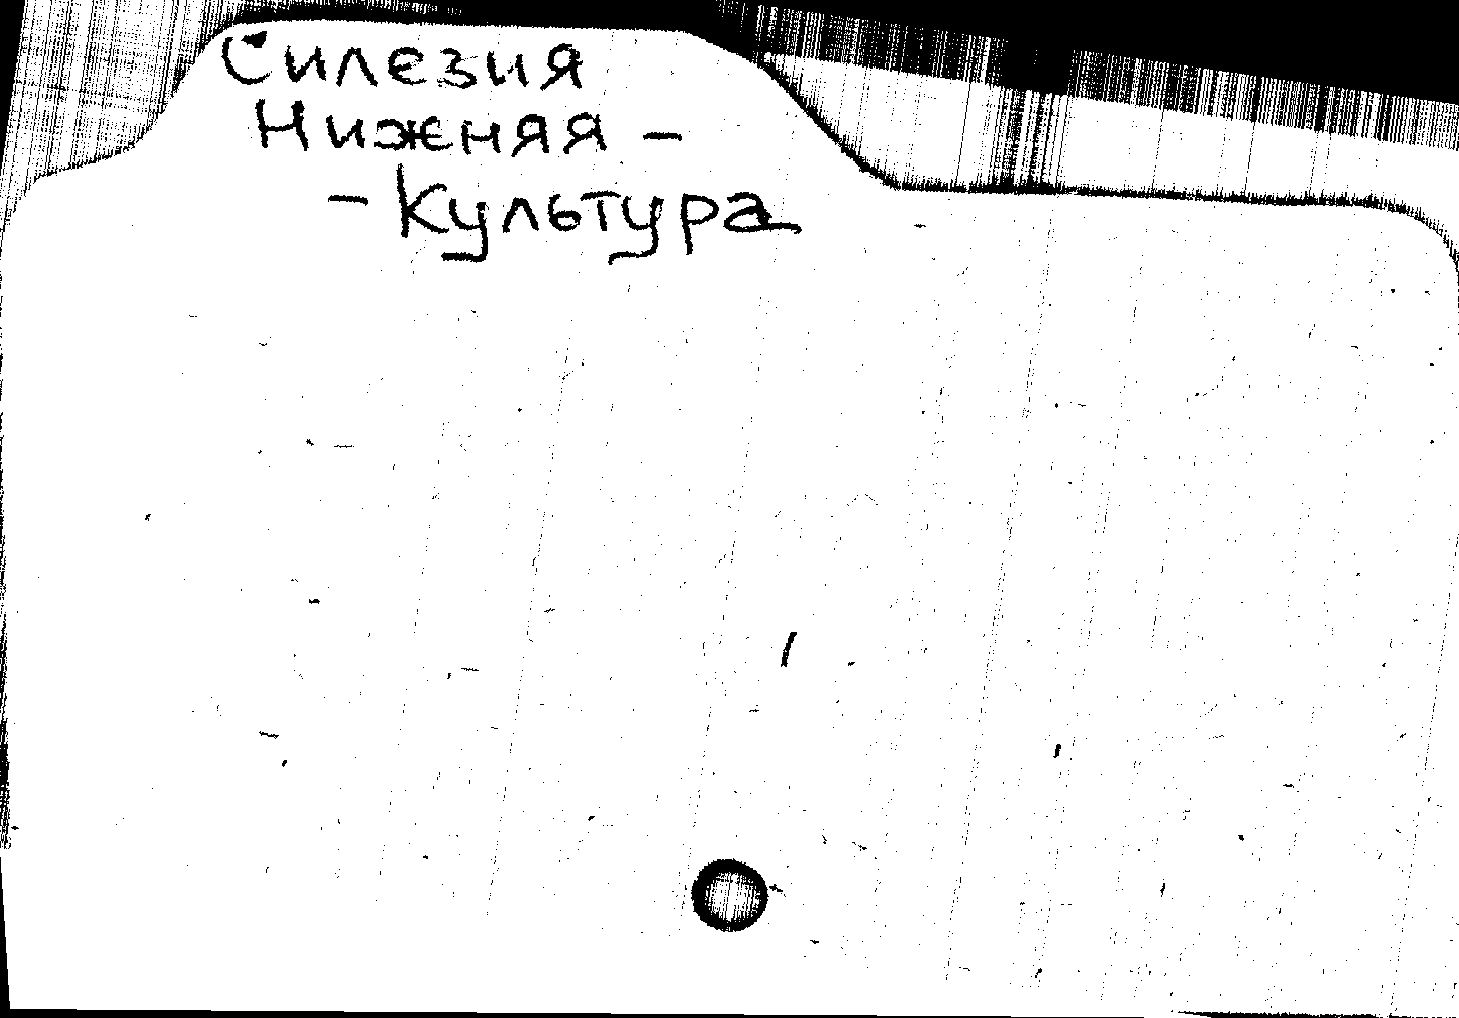 Силезия
Нижняя -
- Культура